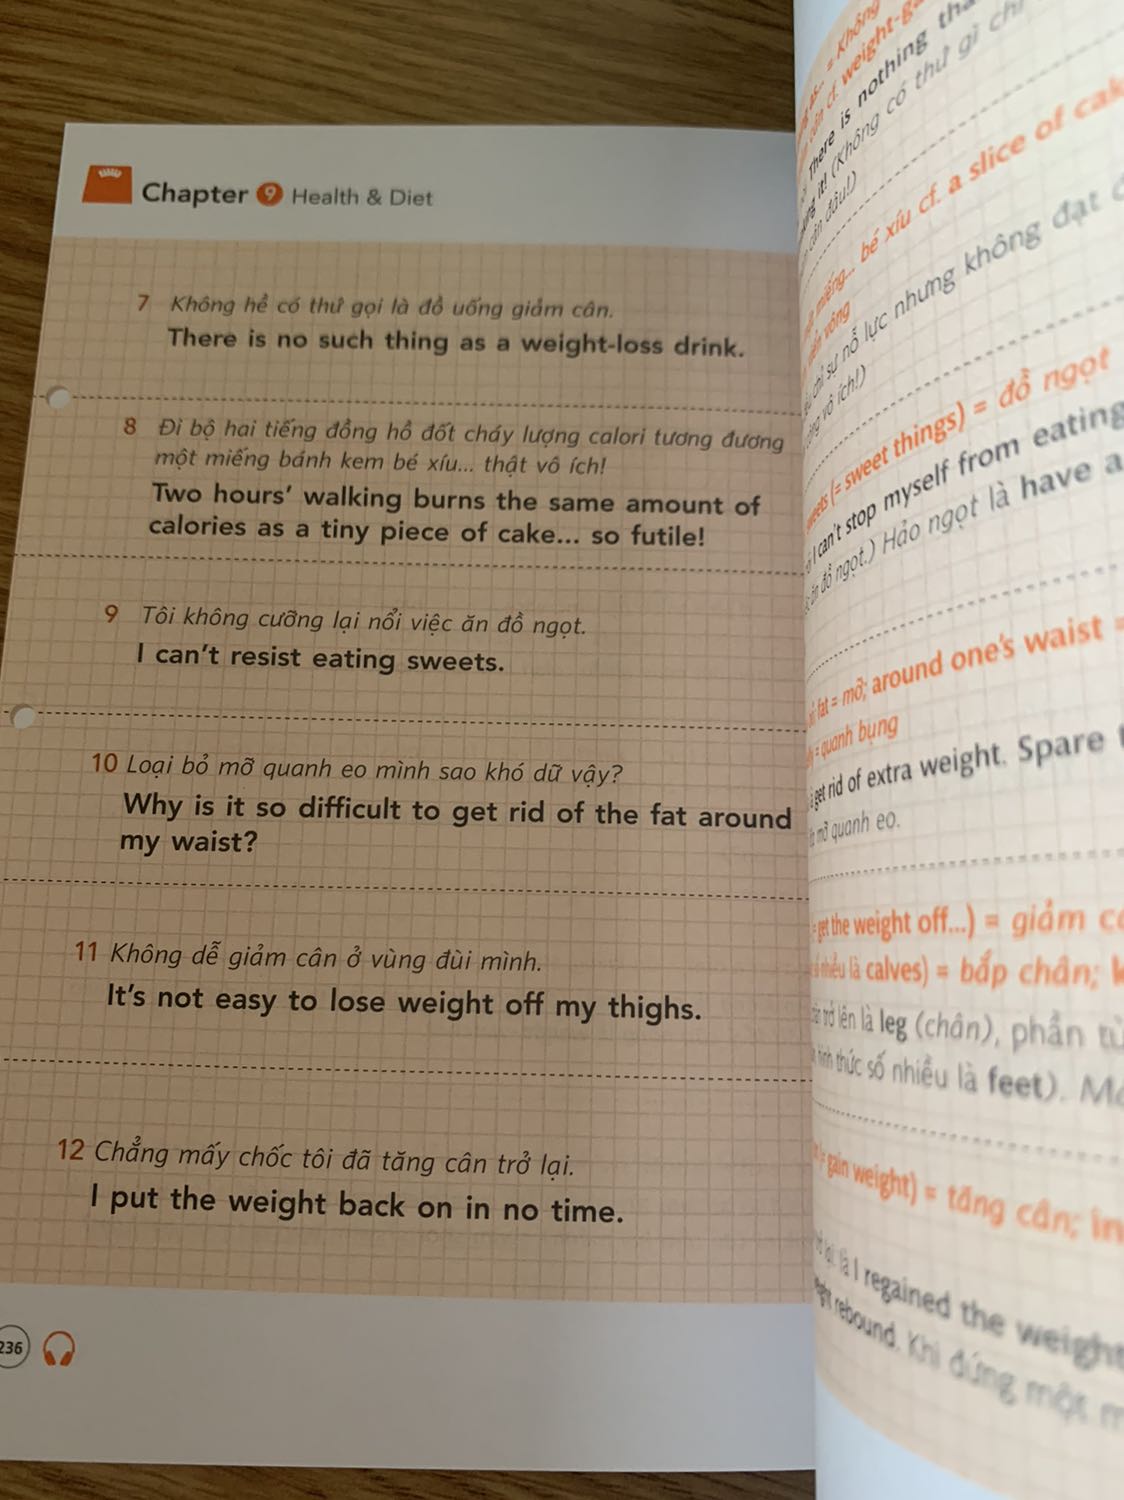 Chapter 9 Health & Diet
7 Không hề có thứ gọi là đồ uống giảm cân.
There is no such thing as a weight-loss drink.
8 Đi bộ hai tiếng đồng hồ đốt cháy lượng calori tương đương
một miếng bánh kem bé xíu... thật vô ích!
Two hours’ walking burns the same amount of
calories as a tiny piece of cake... so futile!
9 Tôi không cưỡng lại nổi việc ăn đồ ngọt.
I can’t resist eating sweets.
10 Loại bỏ mỡ quanh eo mình sao khó dữ vậy?
Why is it so difficult to get rid of the fat around
my waist?
11 Không dễ giảm cân ở vùng đùi mình.
It’s not easy to lose weight off my thighs.
12 Chẳng mấy chốc tôi đã tăng cân trở lại.
I put the weight back on in no time.
236
= Không
cf. weight-
There is nothing
(Không có thứ gì chỉ
cân đâu!)
miếng... bé xíu cf. a slice of
viển vông
chỉ sự nỗ lực nhưng không đạt
công vô ích!)
(= sweet things) = đồ ngọt
I can’t stop myself from eating
ăn đồ ngọt.) Hảo ngọt là have a
fat = mỡ; around one’s waist =
= quanh bụng
get rid of extra weight. Spare
mỡ quanh eo.
get the weight off...) = giảm
số nhiều là calves) = bắp chân;
trở lên là leg (chân), phần
hình thức số nhiều là feet).
gain weight) = tăng cân; in
là I regained the weight
rebound. Khi đứng một